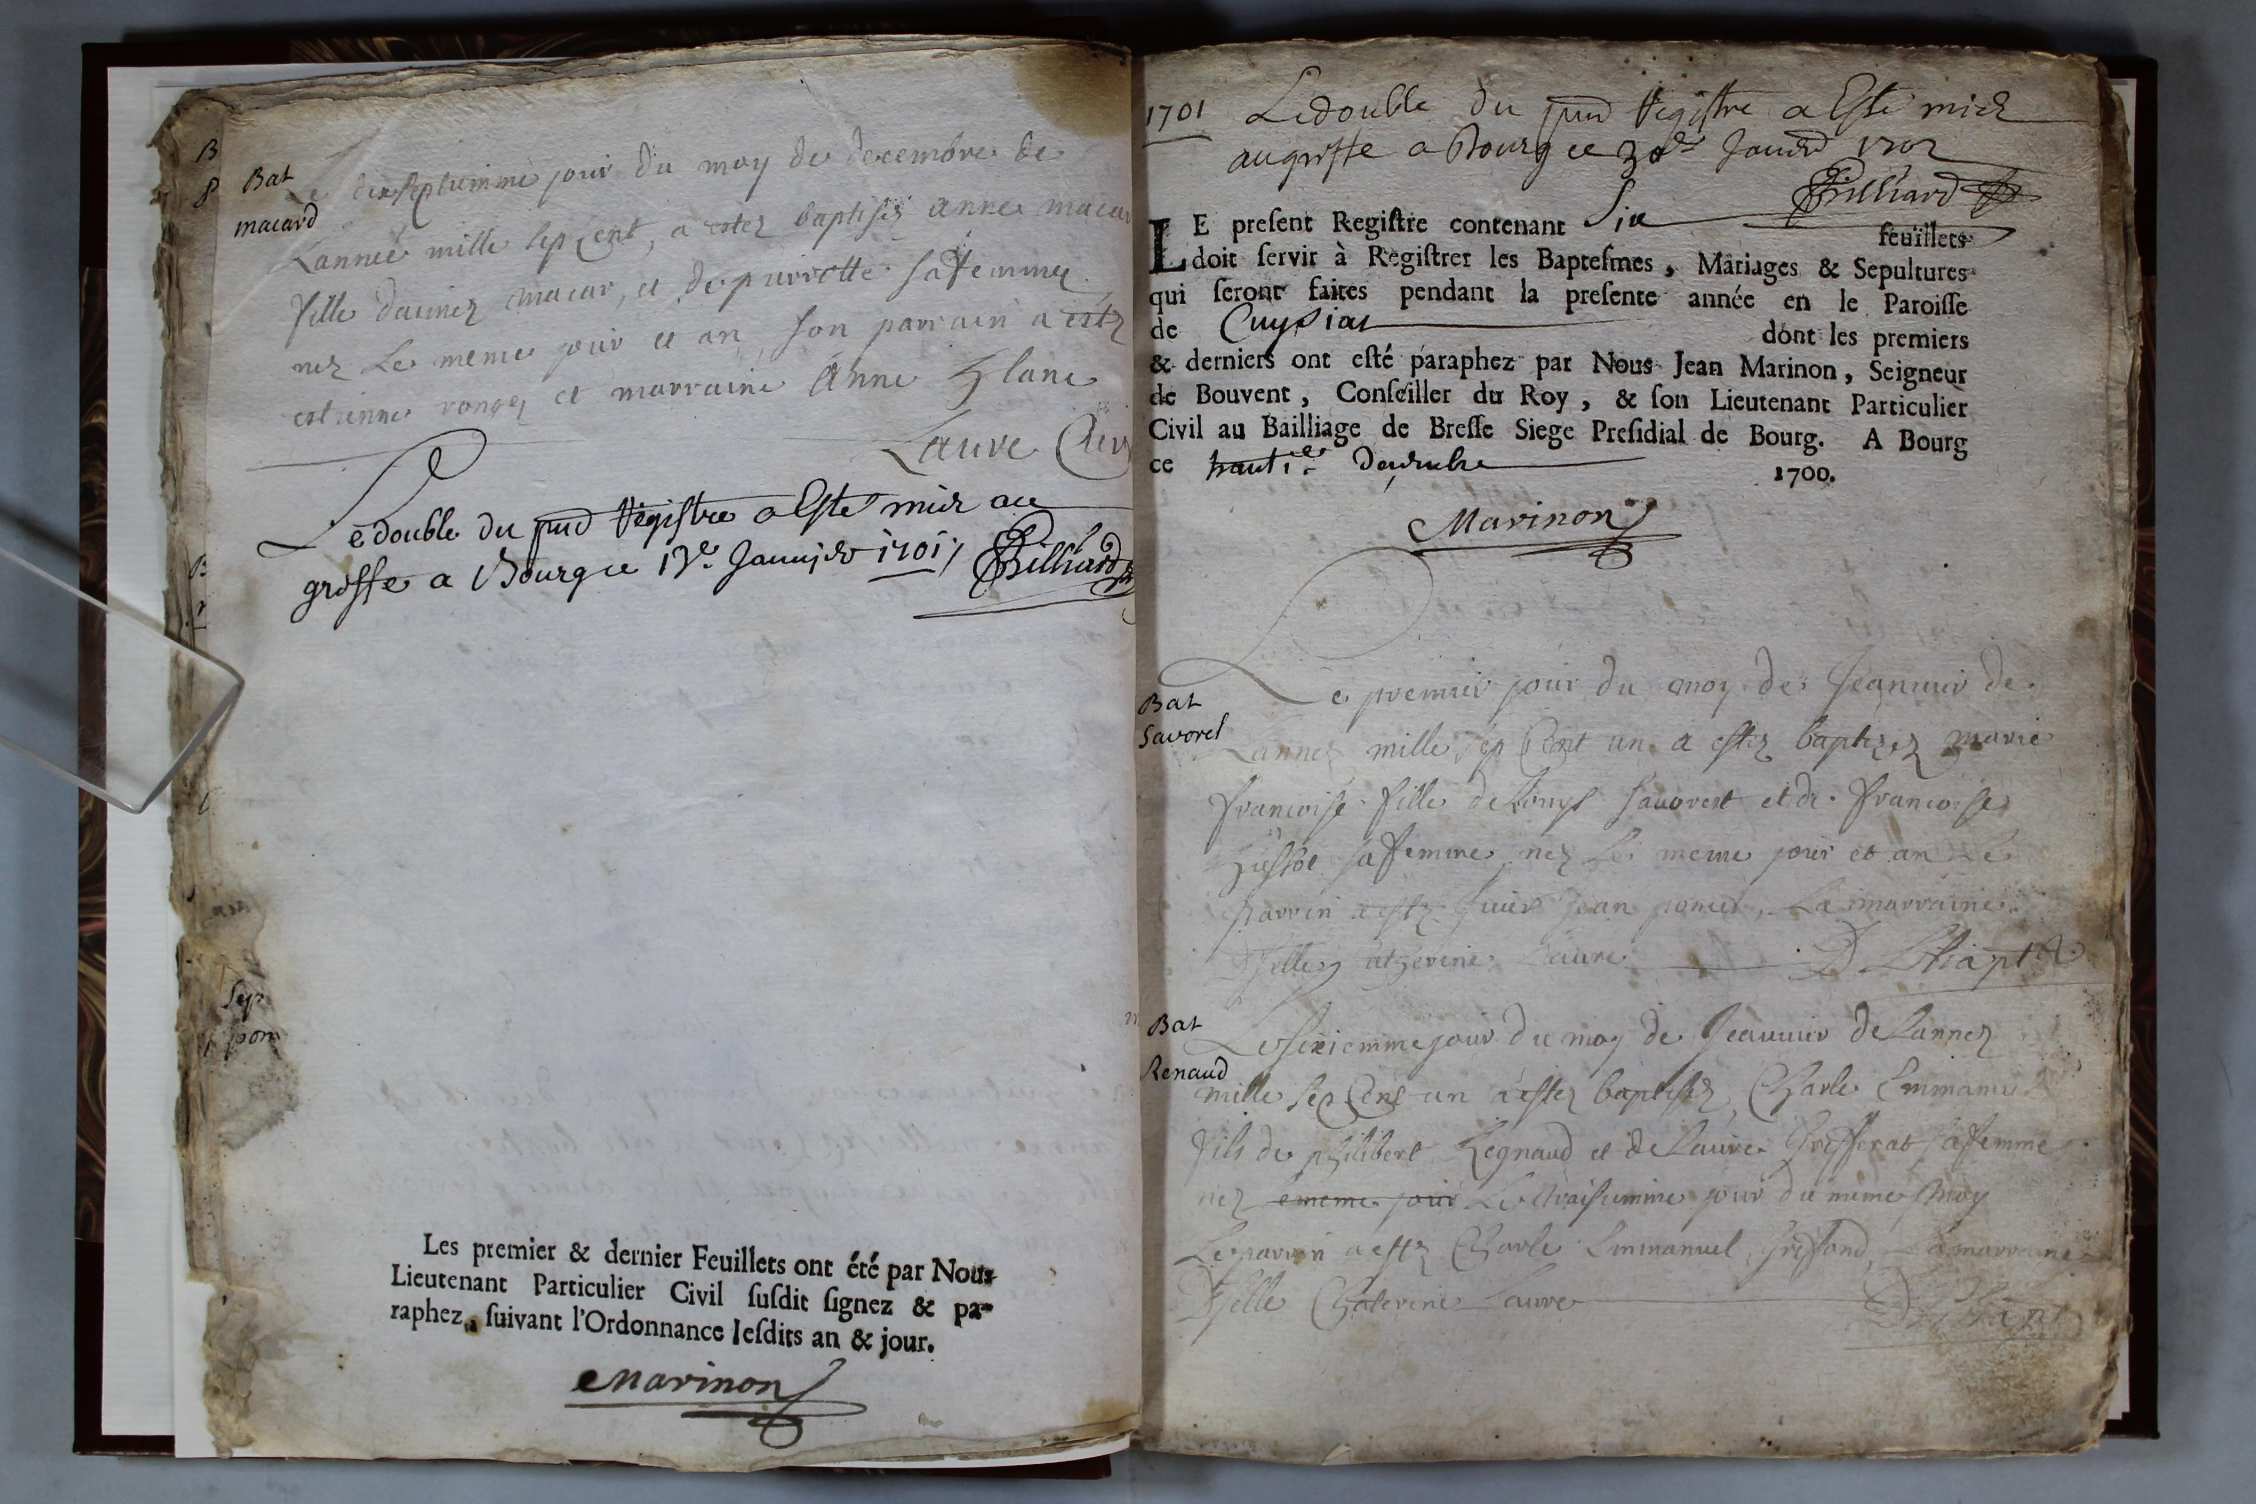 Bat
macard
Le dixseptiemme jour du moy de decembre de
Lannee mille sept Cent, a estez baptisez anne macar
fille daimez macar, et de pierrette sa femme
nez Le meme jour et an, son parrain a estez
estienne et marraine Anne
Laure Cur
Le double du pnt Registre a Este mis au
greffe a Bourg ce Janvier 1701 Billiard
Sep
pom
Les premier & dernier Feuillets ont été par Nous
Lieutenant Particulier Civil susdit signez & pa-
raphez, suivant l'Ordonnance lesdits an & jour.
Marinon
1701 Le double du pnt Registre a Este mis
au greffe a Bourg ce 30e Janvr 1702
Billiard
LE present Registre contenant Six feuillets
doit servir à Registrer les Baptesmes, Mariages & Sepultures
qui seront faites pendant la presente année en le Paroisse
de Cuysiat dont les premiers
& derniers ont esté paraphez par Nous Jean Marinon, Seigneur
de Bouvent, Conseiller du Roy, & son Lieutenant Particulier
Civil au Bailliage de Bresse Siege Presidial de Bourg. A Bourg
ce 1700.
Marinon
Bat
Savorel
Le premier jour du moy de Jeanvier de
Lannez mille sep Cent un a estez baptizez marie
francoise fille de Louys Sauorest et de francoise
sa femme nez Le meme jour et an Le
parrin a estez Jean La marraine
Dselle Catherine Laure
Bat
Renaud
Le sixiemme jour du moy de Jeanvier de Lannez
mille sep Cent un a estez baptisez Charle Emmanuel
fils de philibert Regnaud et de Laure Grefferat sa femme
nez e meme jour Le troisiemme jour du meme moy
Le parrin a estez Charle Emmanuel La marraine
Dselle Chaterine Laure